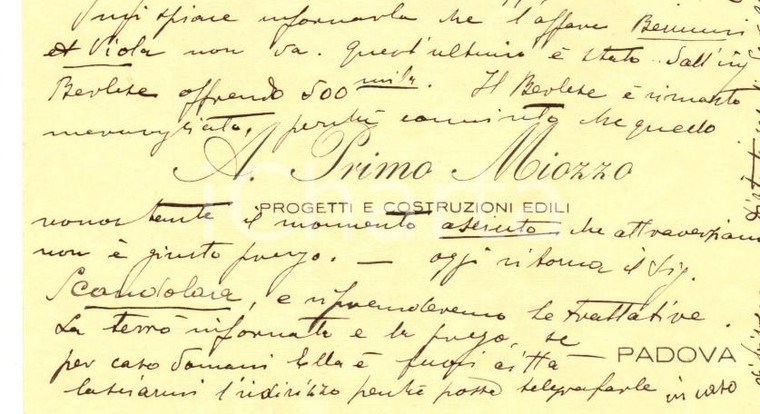 Mi spiace informarla che l'affare Bennini
et Viola non va. Quest'ultimo è stato dall'ing
Berlese offrendo 500 mila. Il Berlese è rimasto
meravigliato, perché convinto che questo
A. Primo Miozzo
PROGETTI E COSTRUZIONI EDILI
nonostante il momento asciutto che attraversiamo
non è giusto prezzo. — oggi ritorna il Sig.
Scandolara, e riprenderemo le trattative.
La terrò informata e la prego, se
per caso domani Ella è fuori città
PADOVA
lasciarmi l'indirizzo perché possa telegrafarle in caso